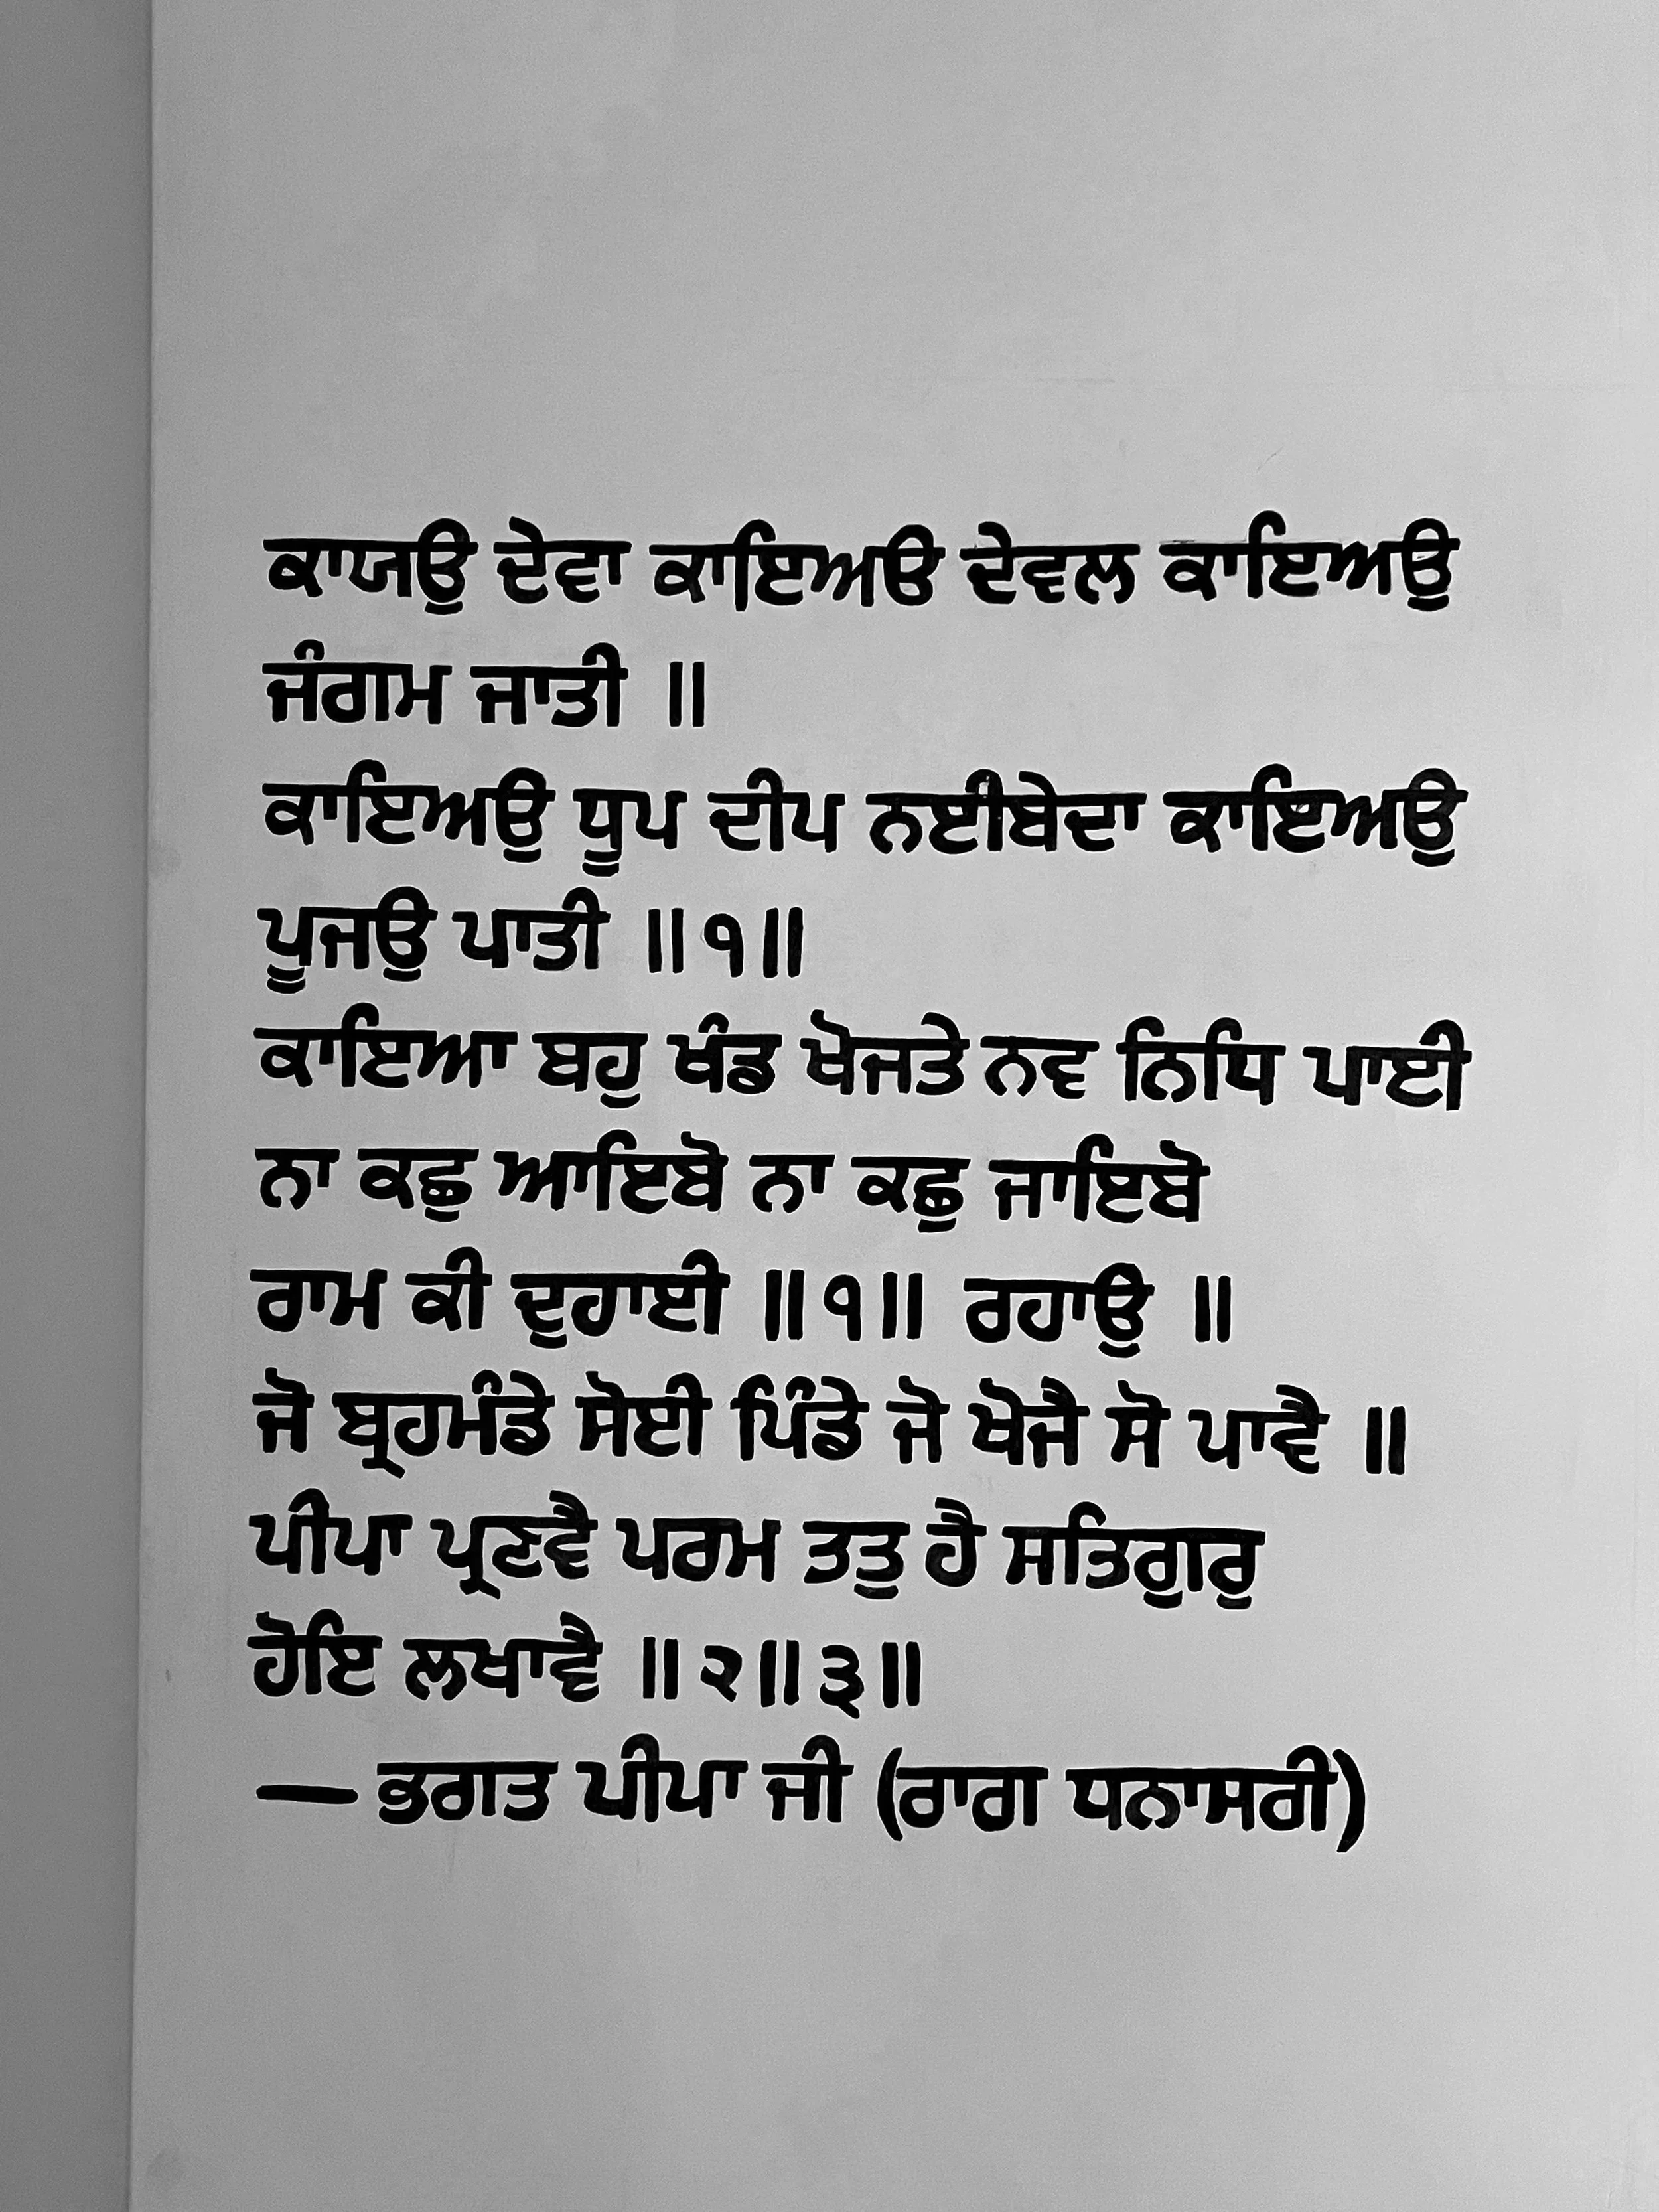 ਕਾਯਉ ਦੇਵਾ ਕਾਇਅਓ ਦੇਵਲ ਕਾਇਅਉ
ਜੰਗਮ ਜਾਤੀ ॥
ਕਾਇਅਉ ਧੂਪ ਦੀਪ ਨਈਬੇਦਾ ਕਾਇਅਉ
ਪੂਜਉ ਪਾਤੀ ॥੧॥
ਕਾਇਆ ਬਹੁ ਖੰਡ ਖੋਜਤੇ ਨਵ ਨਿਧਿ ਪਾਈ
ਨਾ ਕਛੁ ਆਇਬੋ ਨਾ ਕਛੁ ਜਾਇਬੋ
ਰਾਮ ਕੀ ਦੁਹਾਈ ॥੧॥ ਰਹਾਉ ॥
ਜੋ ਬ੍ਰਹਮੰਡੇ ਸੋਈ ਪਿੰਡੇ ਜੋ ਖੋਜੈ ਸੋ ਪਾਵੈ ॥
ਪੀਪਾ ਪ੍ਰਣਵੈ ਪਰਮ ਤਤੁ ਹੈ ਸਤਿਗੁਰੁ
ਹੋਇ ਲਖਾਵੈ ॥੨॥੩॥
— ਭਗਤ ਪੀਪਾ ਜੀ (ਰਾਗ ਧਨਾਸਰੀ)